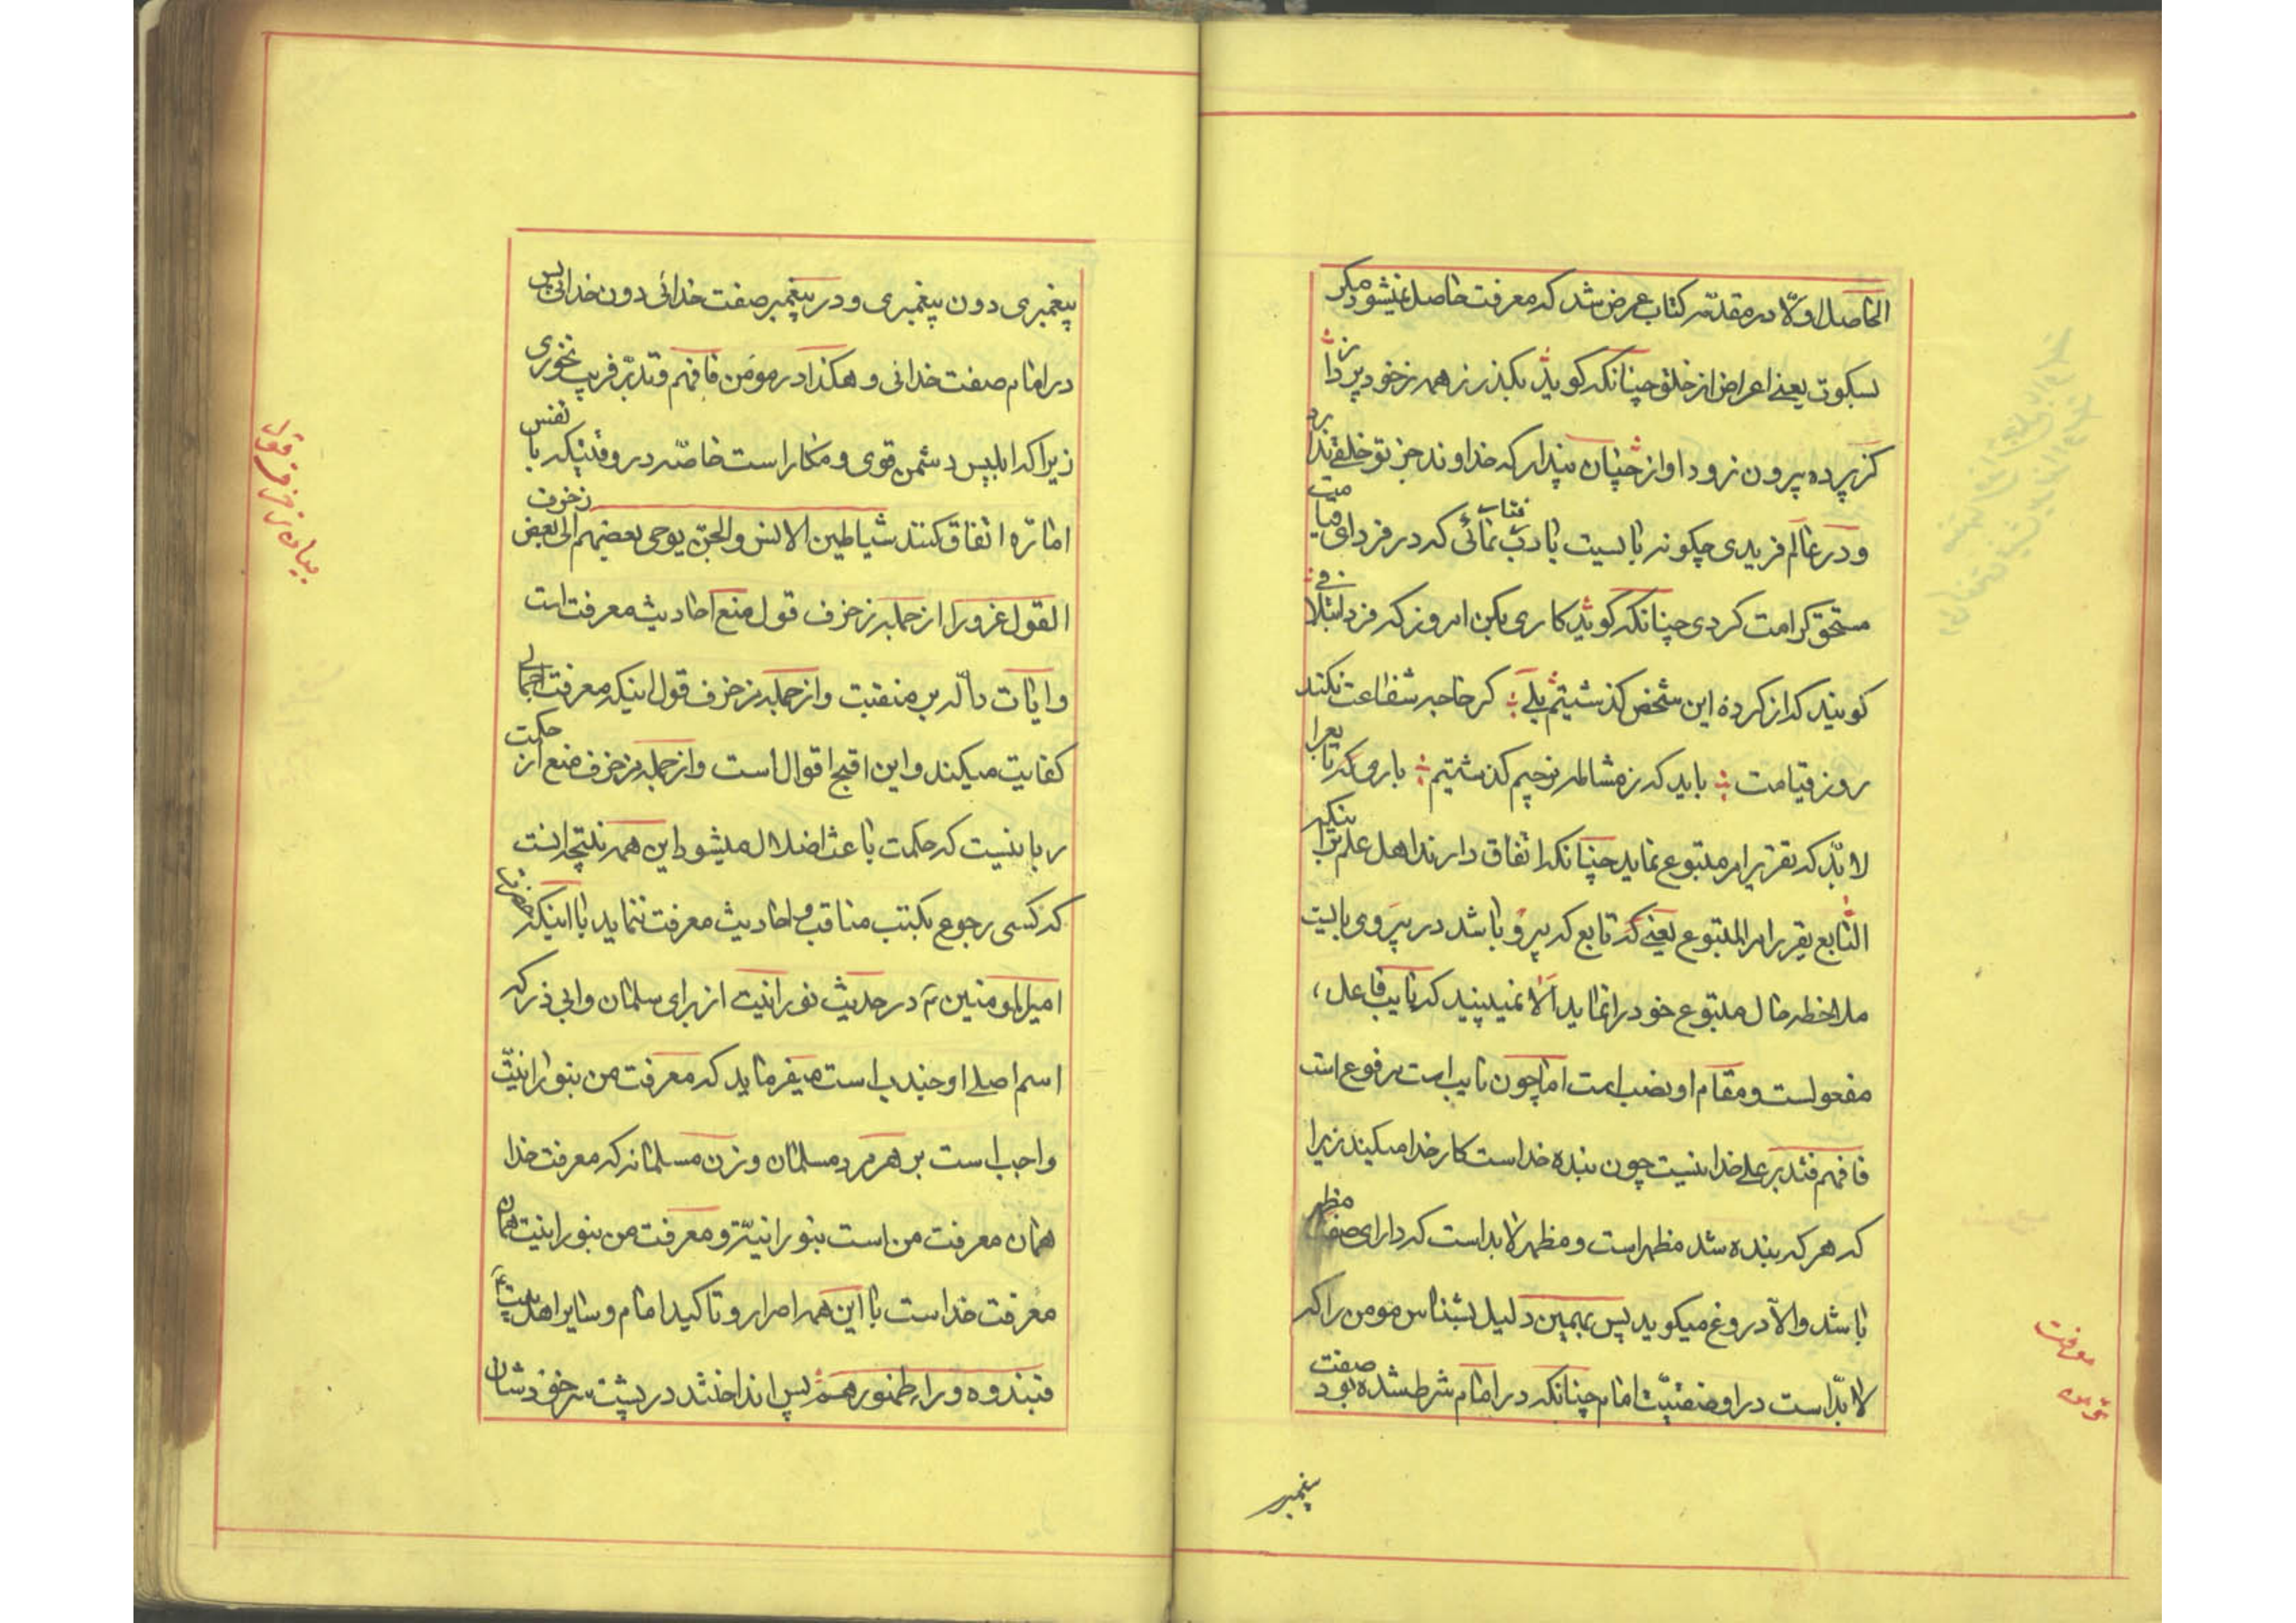 الحاصل اولا در مقدمه کتاب عرض شد که معرفت حاصل نمیشود مکر
بسکوت یعنی اعراض از خلق چنانکه کوید بکذر ز همه ز خود
کز پرده برون نرود اواز چنان مپندار که خداوند جز تو خلقی ندارد
و در عالم فریدی چکونه بایست تا ادب نمائی که در فردای قیامت
مستحق کرامت کردی چنانکه کوید کاری بکن امروز که فردا
کویند که از کرده این شخص کذشتیم بلی کر حاجبه شفاعت نکند
روز قیامت باید که ز مشاطه نرنجیم کذشتیم باری که تابع را
لابد که تقریر امر متبوع نماید چنانکه اتفاق دارند اهل علم بر اینکه
التابع یقرر امر المتبوع یعنی که تابع که پیرو باشد در پیروی بایست
ملاحظه حال متبوع خود را نماید الا نمیبینید که نایب فاعل
مفعولست و مقام او نصب است اما چون نایب است مرفوع است
فافهم فتدبر علی خدا نیست چون بنده خداست کار خدا میکند زیرا
که هر که بنده شد مظهر است و مظهر لابد است که دارای صفات مظهر
باشد والا دروغ میکوید پس بهمین دلیل بشناس مومن را که
لابد است در او صفتیت امام چنانکه در امام شرط شده بود صفت
پیغمبر
معرفت
پیغمبری دون پیغمبری و در پیغمبر صفت خدائی دون خدائی پس
در امام صفت خدائی و هکذا در مومن فافهم و تدبر فریب نخوری
زیرا که ابلیس دشمن قوی و مکار است خاصه در وقتیکه با نفس
اماره اتفاق کنند شیاطین الانس والجن یوحی بعضهم الی بعض زخرف
القول غرورا از جمله زخرف قول منع احادیث معرفت است
و ایات داله بر منقبت و از جمله زخرف قول اینکه معرفت اجمالی
کفایت میکند و این اقبح اقوال است و از جمله زخرف منع از حکمت
ربانیست که حکمت باعث اضلال میشود این همه نتیجه انست
که کسی رجوع بکتب مناقب و احادیث معرفت ننماید با اینکه حضرت
امیرالمومنین ع در حدیث نورانیت از برای سلمان و ابی ذر که
اسم اصلی او جندب است میفرماید که معرفت من بنورانیت
واجب است بر هر مرد مسلمان و زن مسلمانه که معرفت خدا
همان معرفت من است بنورانیت و معرفت من بنورانیت همان
معرفت خداست با این همه اصرار و تاکید امام و سایر اهل بیت
فنبذوه وراء ظهورهم پس انداختند در پشت سر خودشان